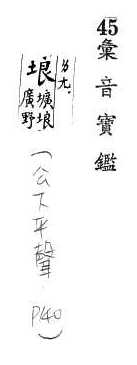 45彙音寶鑑
ㄌㄤ.
埌 壙埌
廣野
(公下平聲 P140)